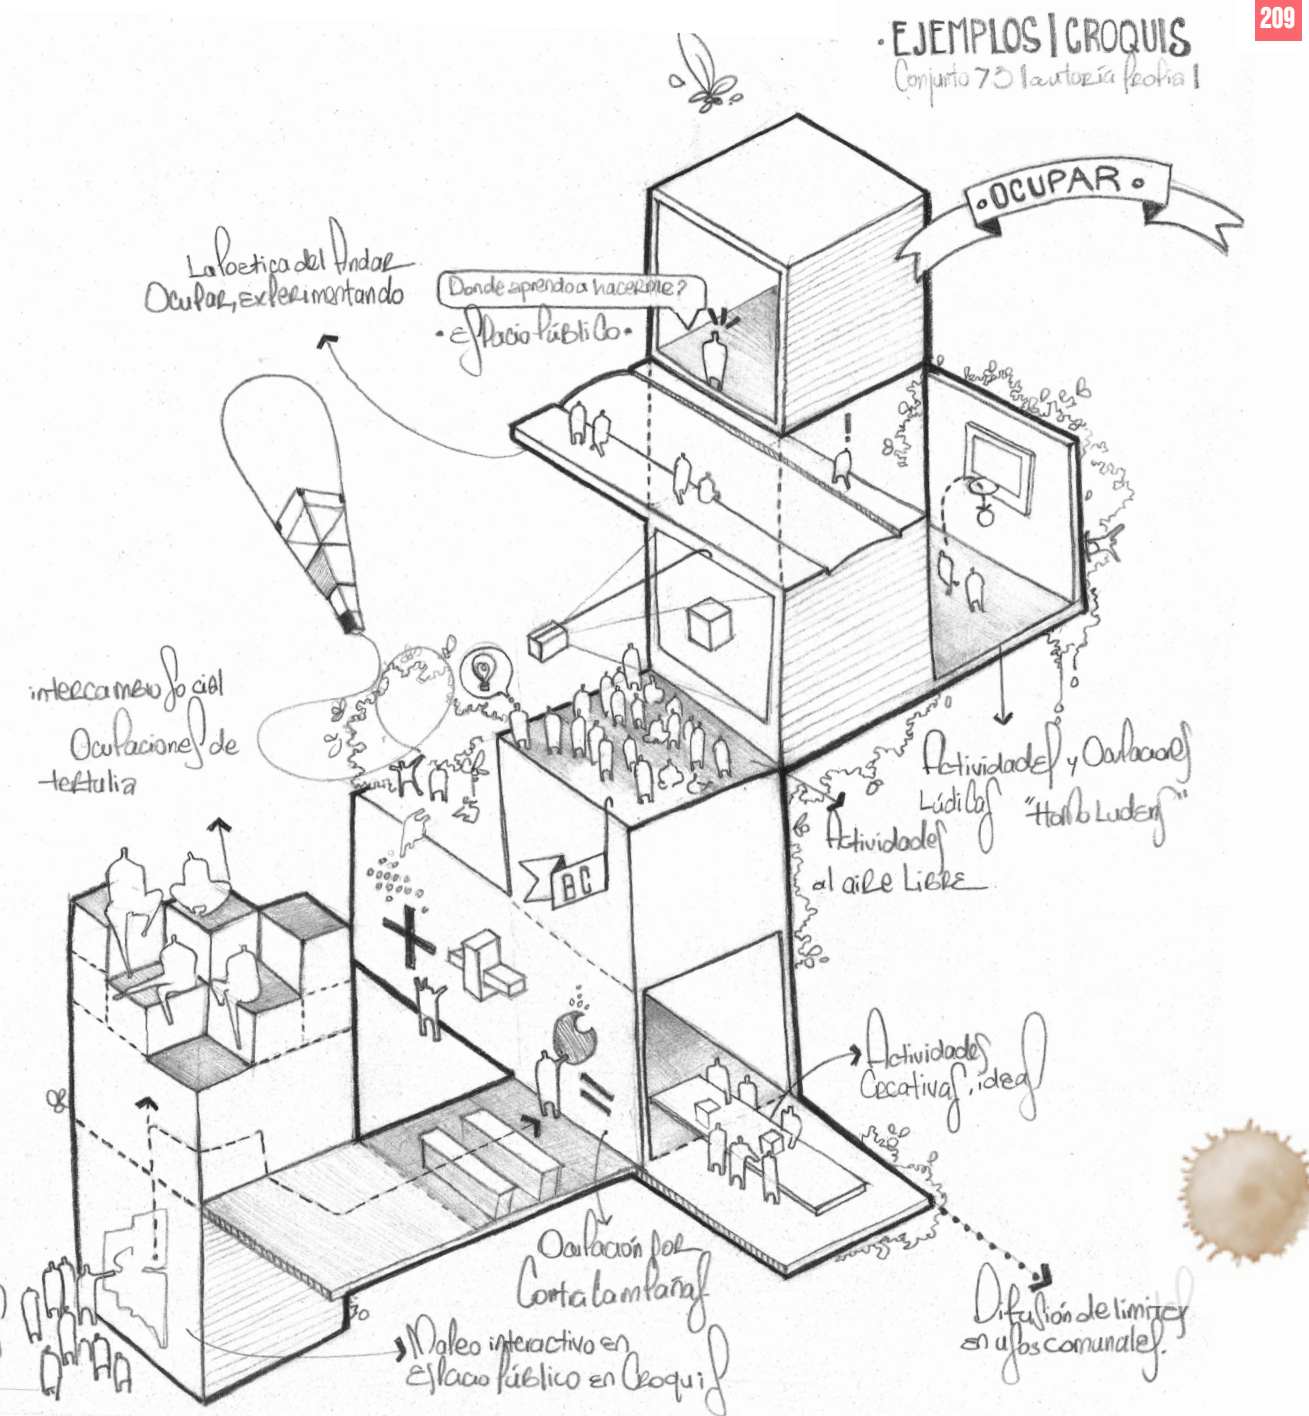 209
· EJEMPLOS | CROQUIS
Conjunto 73 | autoría Propia |
• OCUPAR •
La Poetica del Andar
Ocupar, experimentando
Donde aprendo a hacerme?
• Espacio Público •
intercambio Social
Ocupaciones de
tertulia
Actividades y Ocupaciones
Lúdicas "Homo Ludens"
Actividades
al aire Libre
BC
Actividades
Creativas, ideas
Ocupación por
Contra Campañas
Difusión de limites
en usos comunales.
Mapeo interactivo en
Espacio Público en Croquis